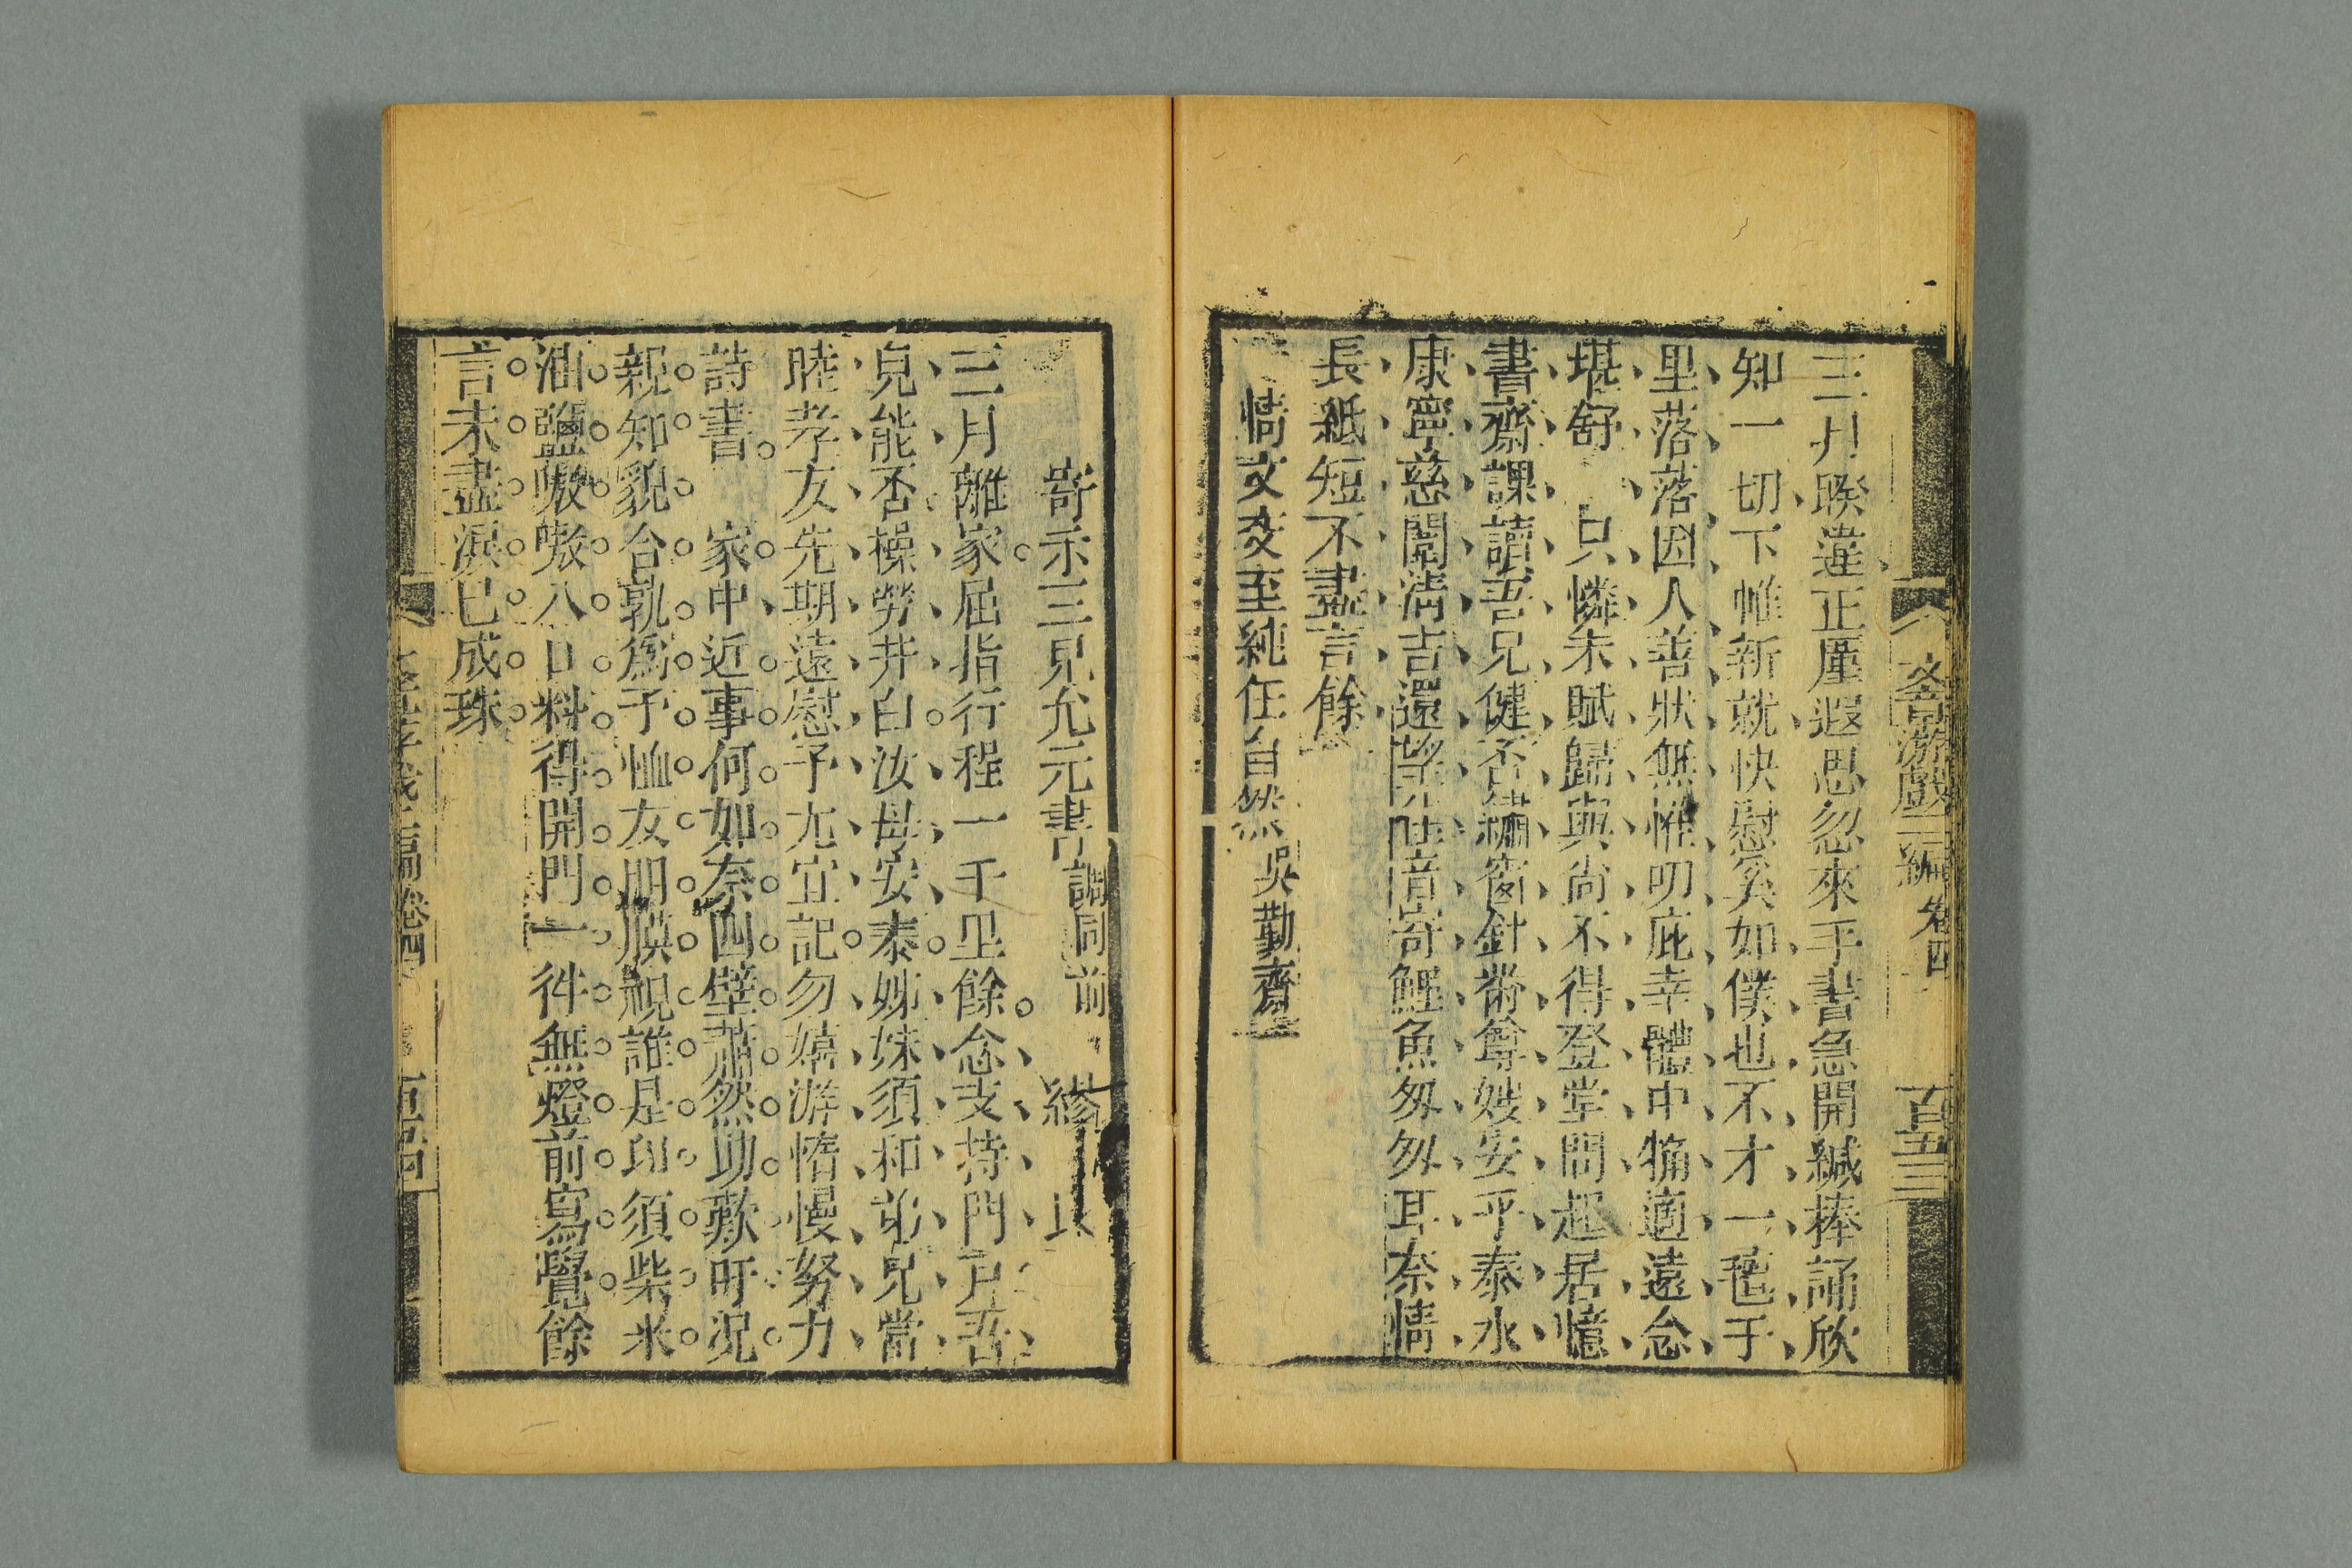 文章游戲二編 卷四 百五三
三月睽違正廑遐思忽來手書急開緘捧誦欣
知一切下帷新就快慰奚如僕也不才一毡于
里落落因人善狀無惟叨庇幸體中猶適遠念
堪舒 只憐未賦歸與尚不得登堂問起居憶
書齋課讀吾兄健否繡窗針黹尊嫂安乎泰水
康寧慈闈清吉還望佳音寄鯉魚匆匆耳奈情
長紙短不盡言餘
情文交至純任自然吳勤齋
寄示三兒允元書調同前 繆 艮
三月離家屈指行程一千里餘念支持門戶吾
兒能否操勞井臼汝母安泰姊妹須和弟兄當
睦孝友先期遠慰予尤宜記勿嬉游惰慢努力
詩書 家中近事何如奈四壁蕭然助歎吁況
親知貌合孰為予恤友朋膜視誰是卬須柴米
油鹽嗷嗷八口料得開門一件無燈前寫覺餘
言未盡淚已成珠
卷四 百五四